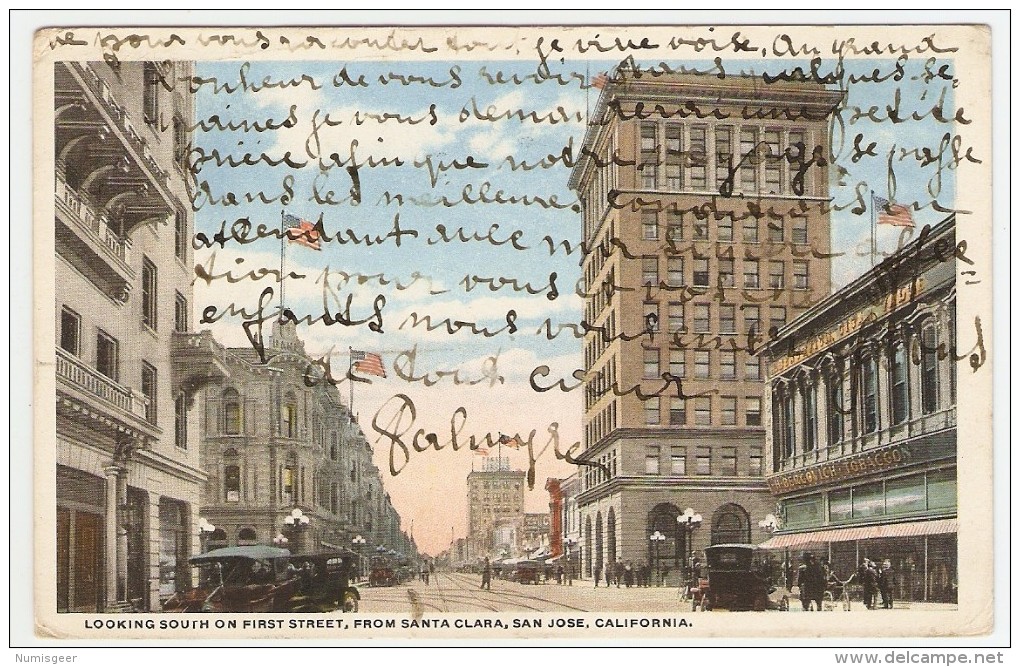 ne pour vous raconter tout, je vive voise, Au grand
bonheur de vous revoir dans quelques se=
maines je vous demanderai une petite
prière afin que notre voyage se passe
dans les meilleures conditions en
attendant avec ma sincère affec=
tion pour vous et vos
enfants nous vous
de tout cœur
Palmyre
LOOKING SOUTH ON FIRST STREET, FROM SANTA CLARA, SAN JOSE, CALIFORNIA.
Numisgeer
www.delcampe.net